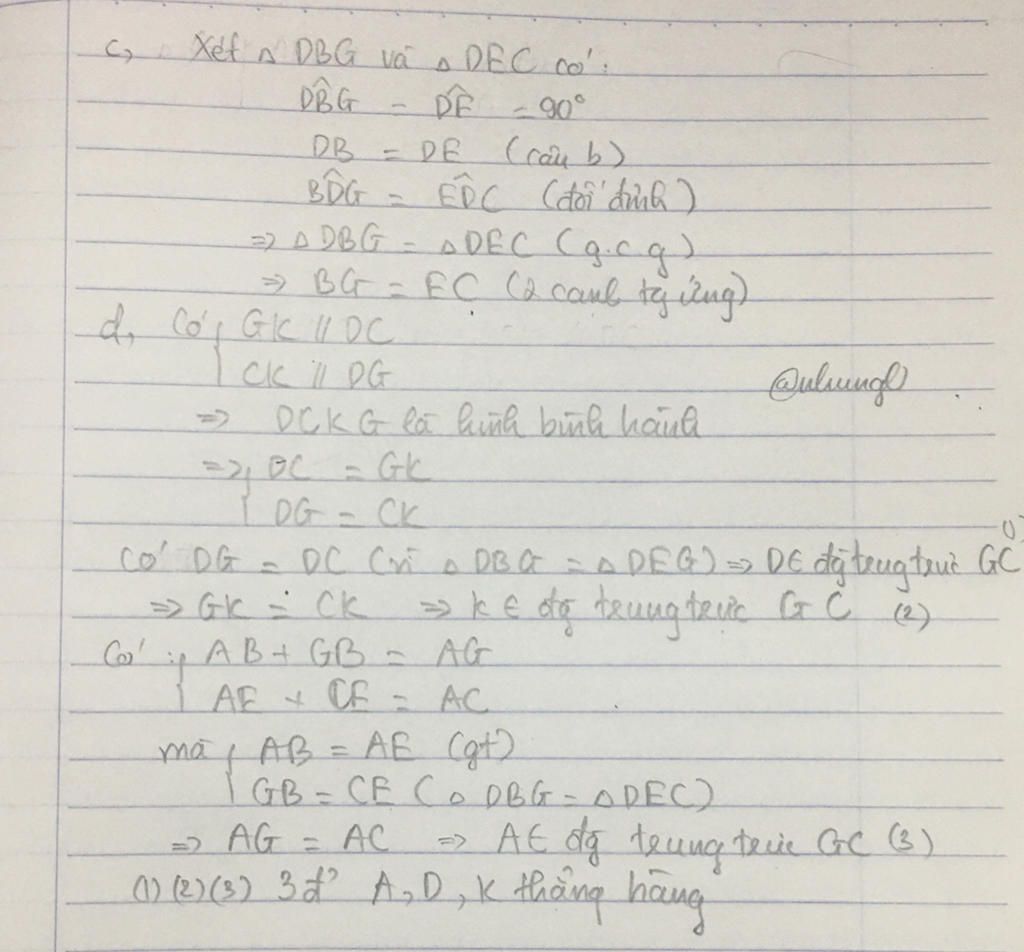 c, Xét △ DBG và △ DEC có:
DB̂G = DÊ = 90°
DB = DE (câu b)
BD̂G = ED̂C (đối đỉnh)
=> △ DBG = △ DEC (g.c.g)
=> BG = EC (2 cạnh tg ứng)
d, Có { GK // DC
CK // DG
@nhungl
=> DCKG là hình bình hành
=> { DC = GK
DG = CK
Có DG = DC (vì △ DBG = △ DEG) => D∈ đg trung trực GC (1)
=> GK = CK => K ∈ đg trung trực GC (2)
Có : { AB + GB = AG
AE + CE = AC
mà { AB = AE (gt)
GB = CE (△ DBG = △ DEC)
=> AG = AC => A∈ đg trung trực GC (3)
(1) (2) (3) 3 đ' A, D, K thẳng hàng